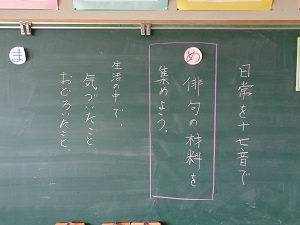 日常を十七音で
め
俳句の材料を
集めよう。
ま
生活の中で、
気づいたこと
おどろいたこと。